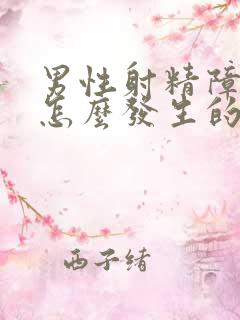 男性射精障
怎麼發生的
西子緒